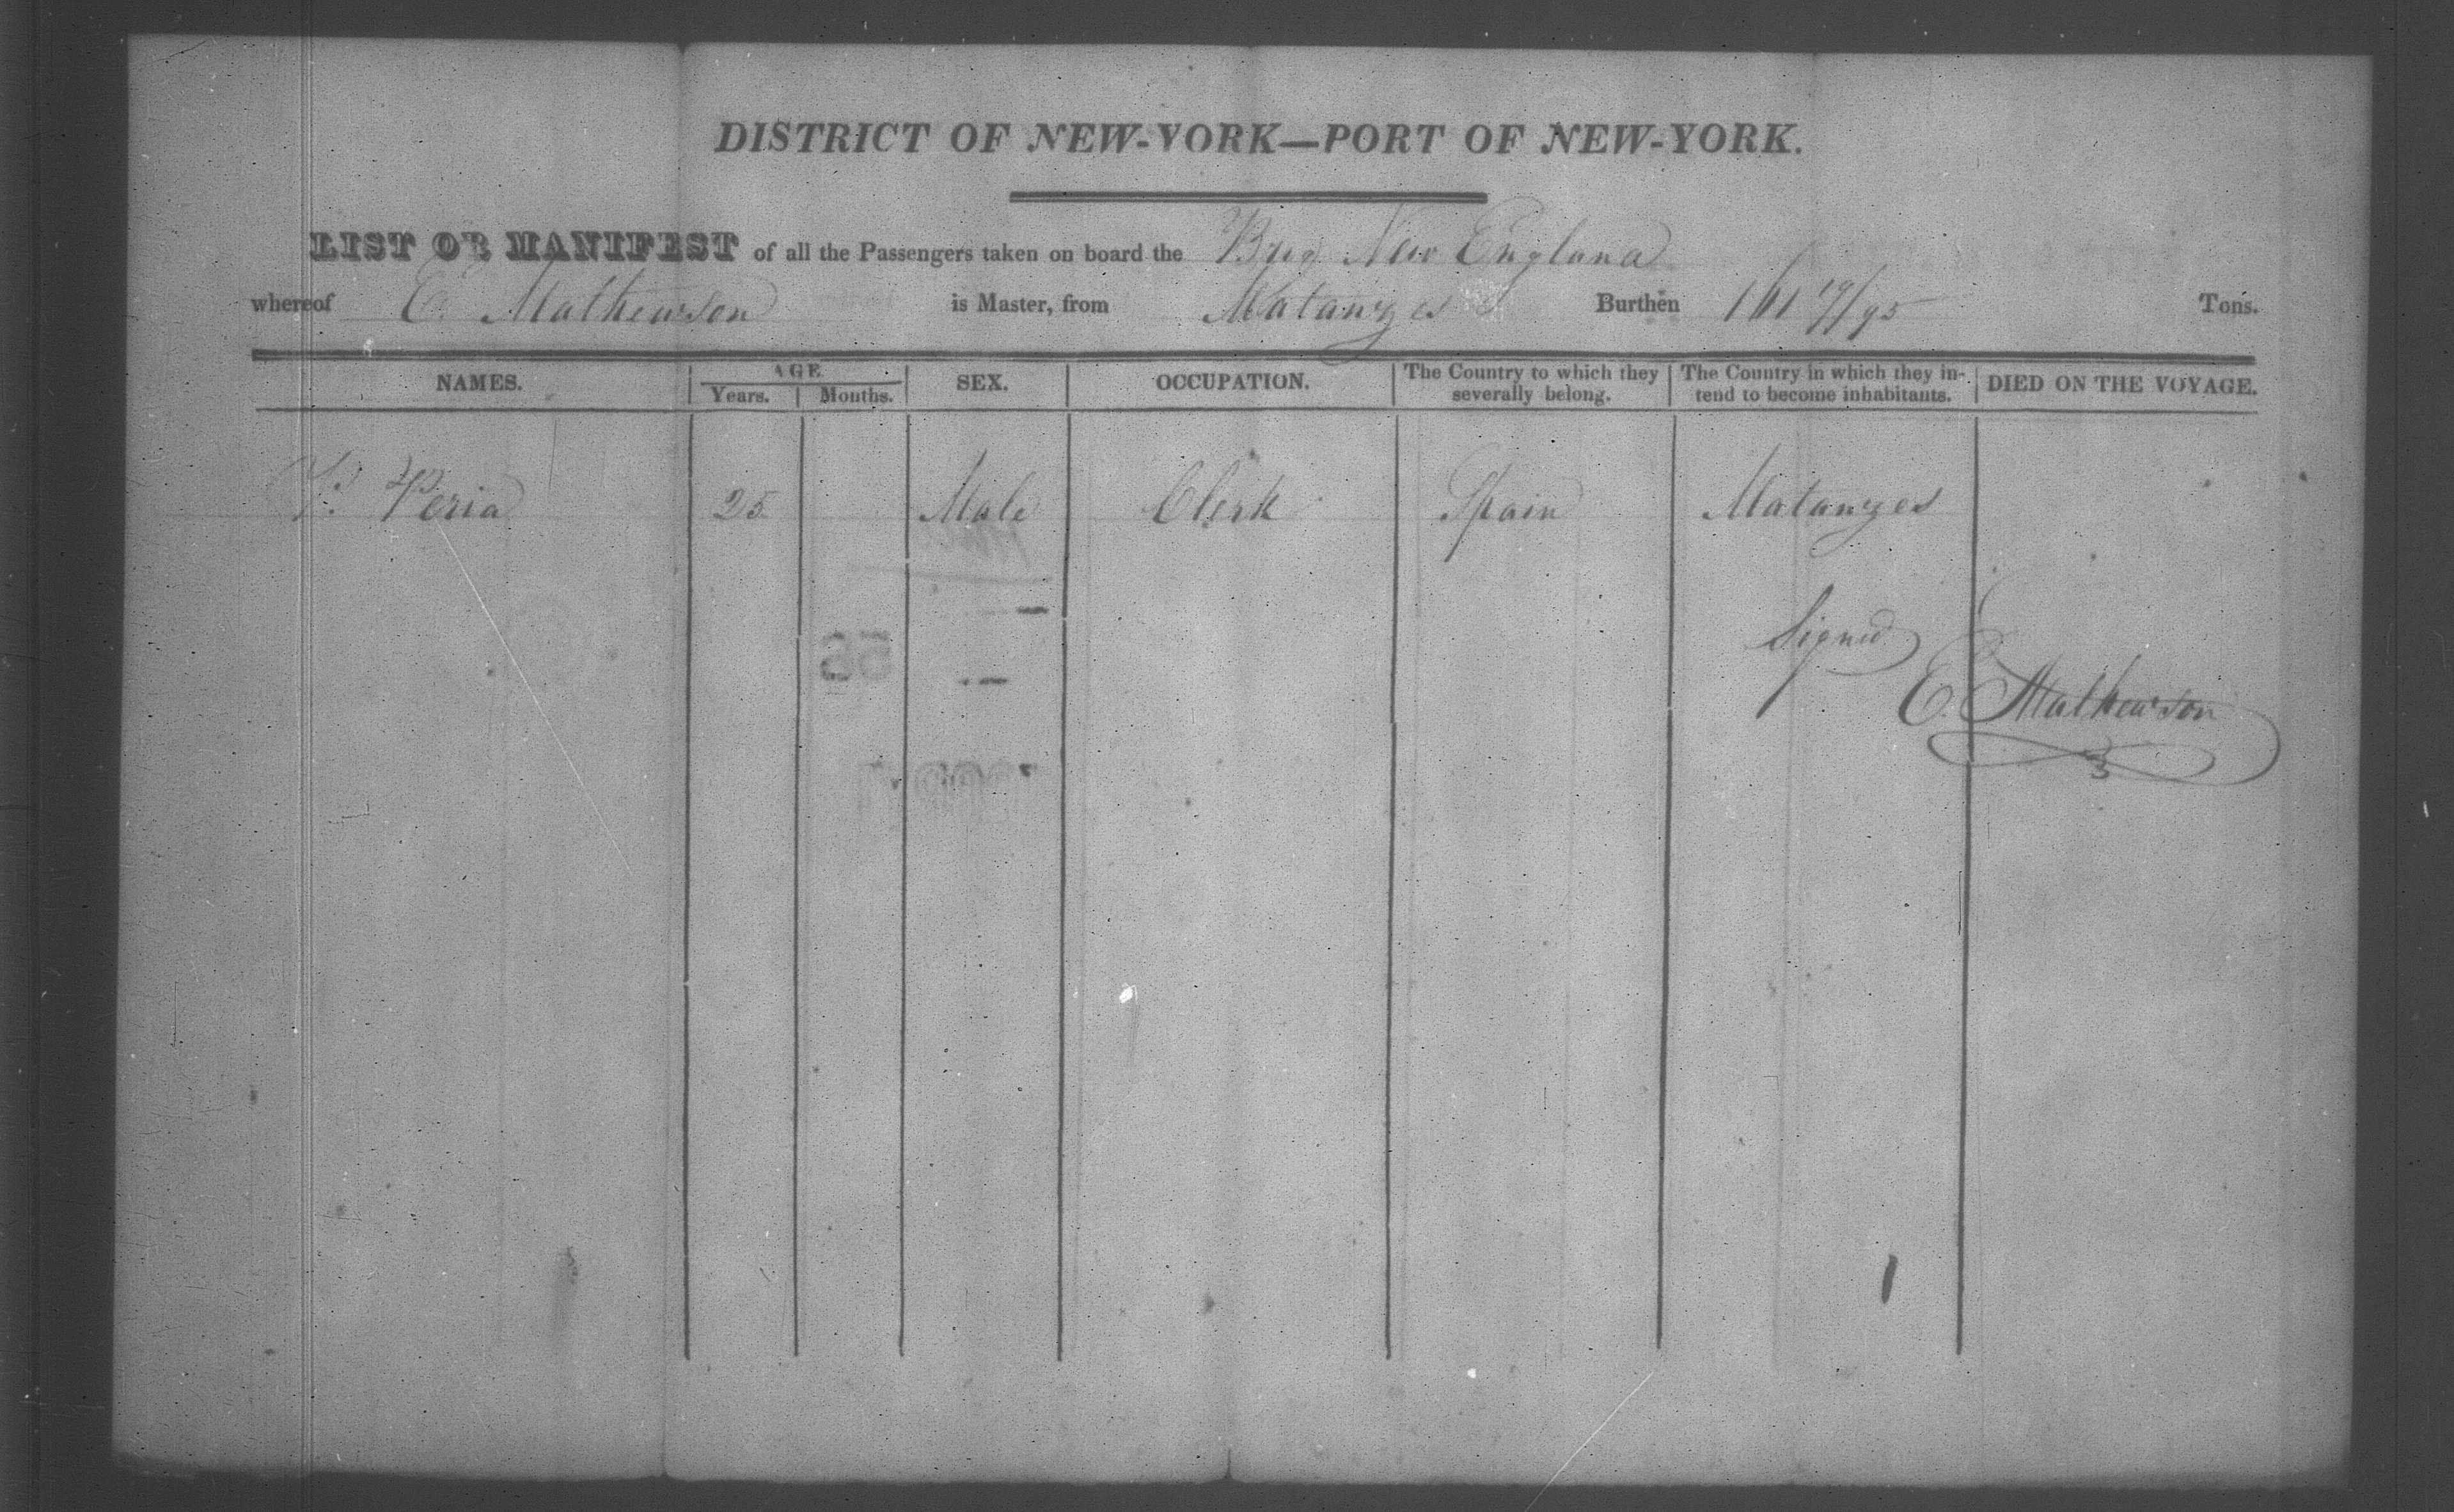 DISTRICT OF NEW-YORK—PORT OF NEW-YORK.
LIST OR MANIFEST of all the Passengers taken on board the Brig New England
whereof E. Mathewson is Master, from Matanzes Burthen 161 19/95 Tons.
NAMES. AGE. Years. Months. SEX. OCCUPATION. The Country to which they severally belong. The Country in which they intend to become inhabitants. DIED ON THE VOYAGE.
P. Peria 25 Male Clerk Spain Matanzes
Signed
E. Mathewson
1